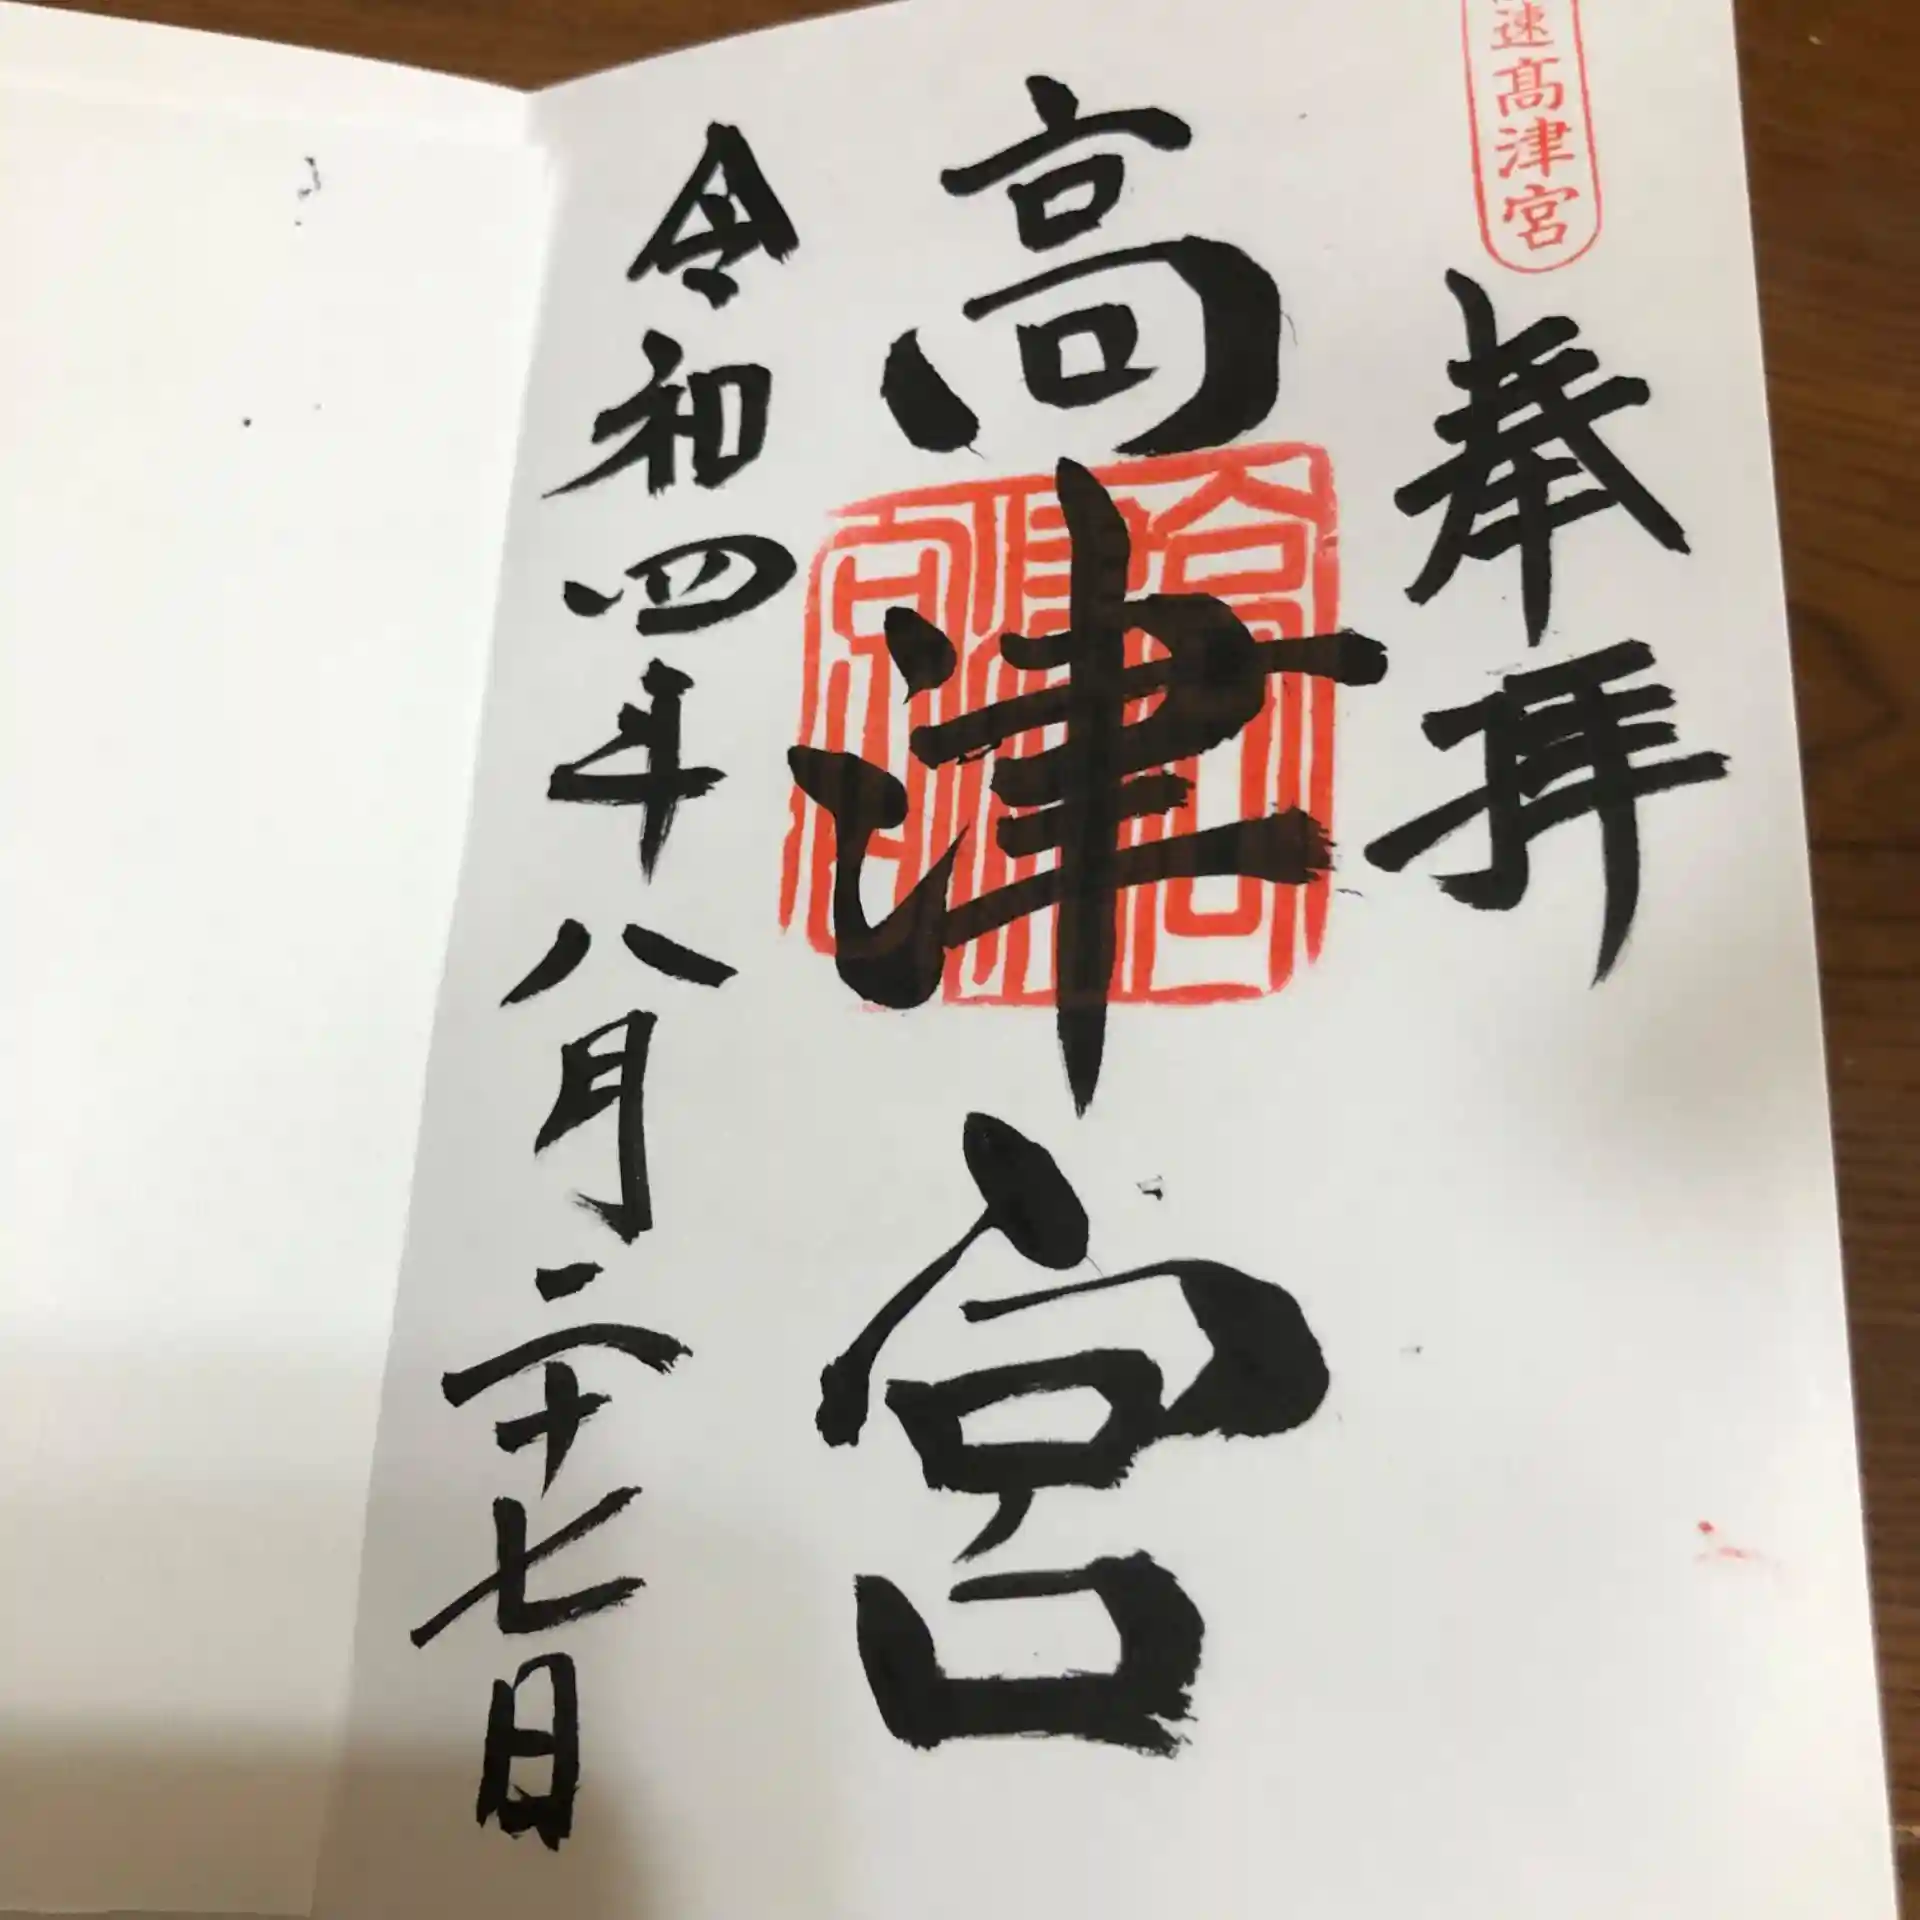 速髙津宮
奉拝
高津宮
高津宮
令和四年八月二十七日